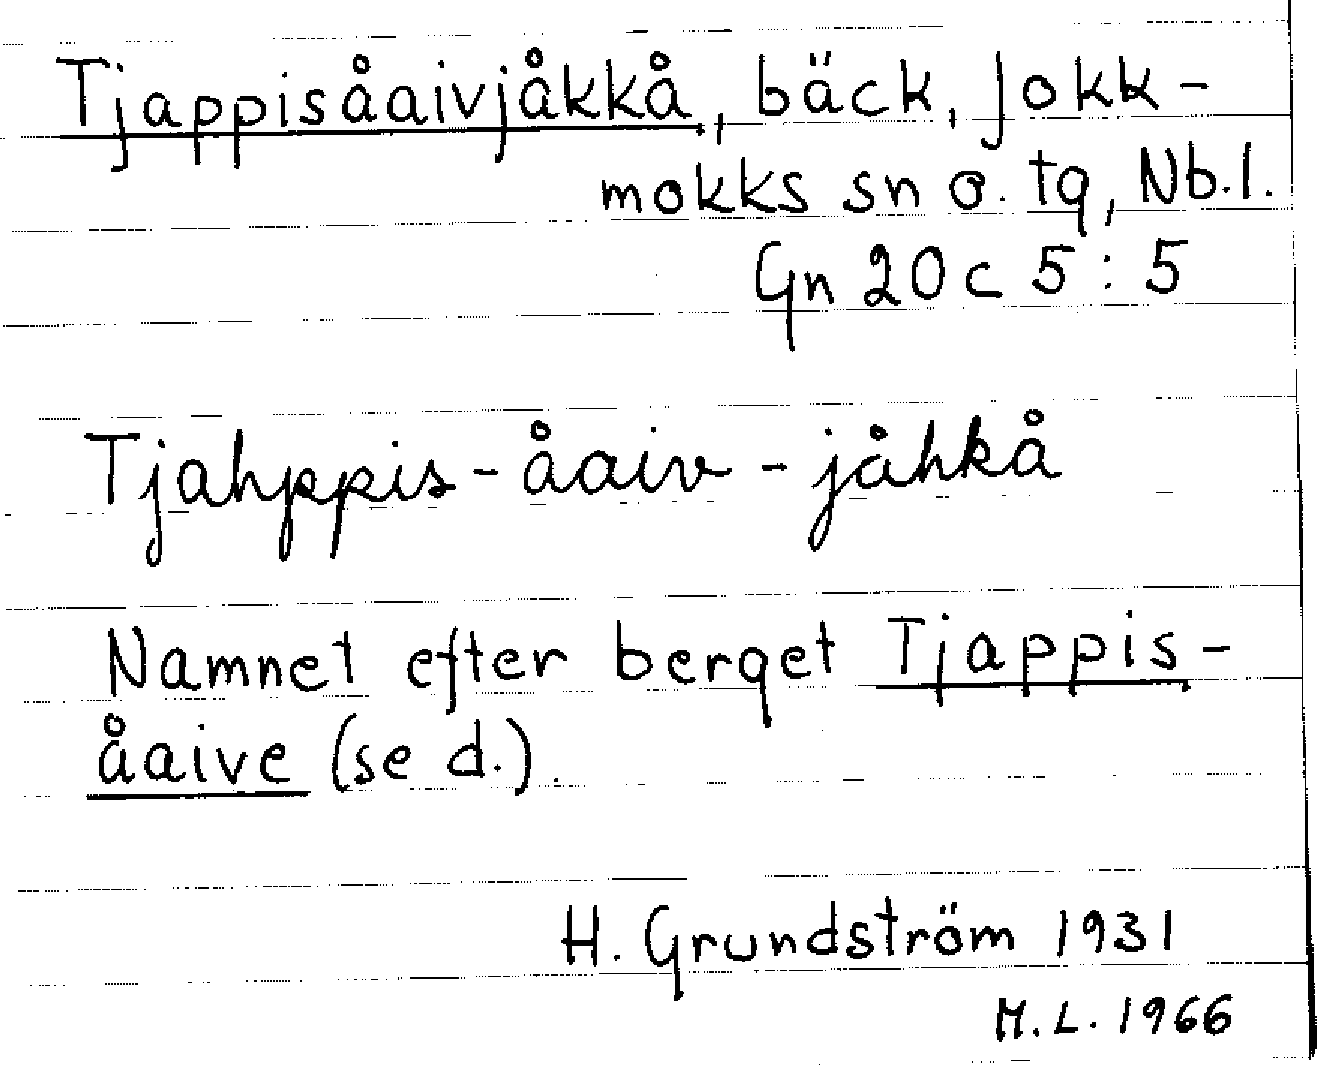 Tjappisåaivjåkkå, bäck, Jokk-
mokks sn o. tg, Nb.l.
Gn 20c 5:5
Tjahppis-åaiv-jåhkå
Namnet efter berget Tjappis-
åaive (se d.).
H. Grundström 1931
M.L. 1966